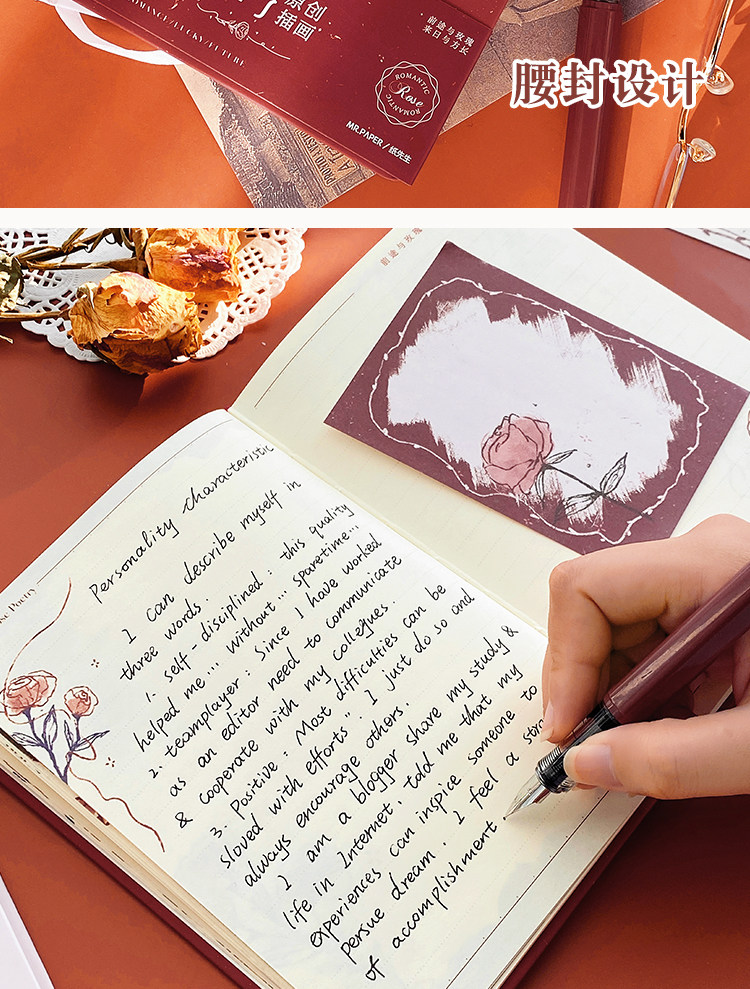 原创
插画
ROMANCE/LUCKY/FUTURE
前途与玫瑰
来日与方长
ROMANTIC
Rose
ROMANTIC
MR.PAPER / 纸先生
腰封设计
前途与玫瑰
Poetry
Personality characteristic
I can describe myself in
three words.
1. self-disciplined : this quality
helped me ... without ... sparetime...
2. teamplayer : Since I have worked
as an editor need to communicate
& cooperate with my collegues.
3. Positive : Most difficulties can be
sloved with efforts". I just do so and
always encourage others.
I am a blogger share my study &
life in Internet, told me that my
experiences can inspice someone to
persue dream. I feel a
of accomplishment.